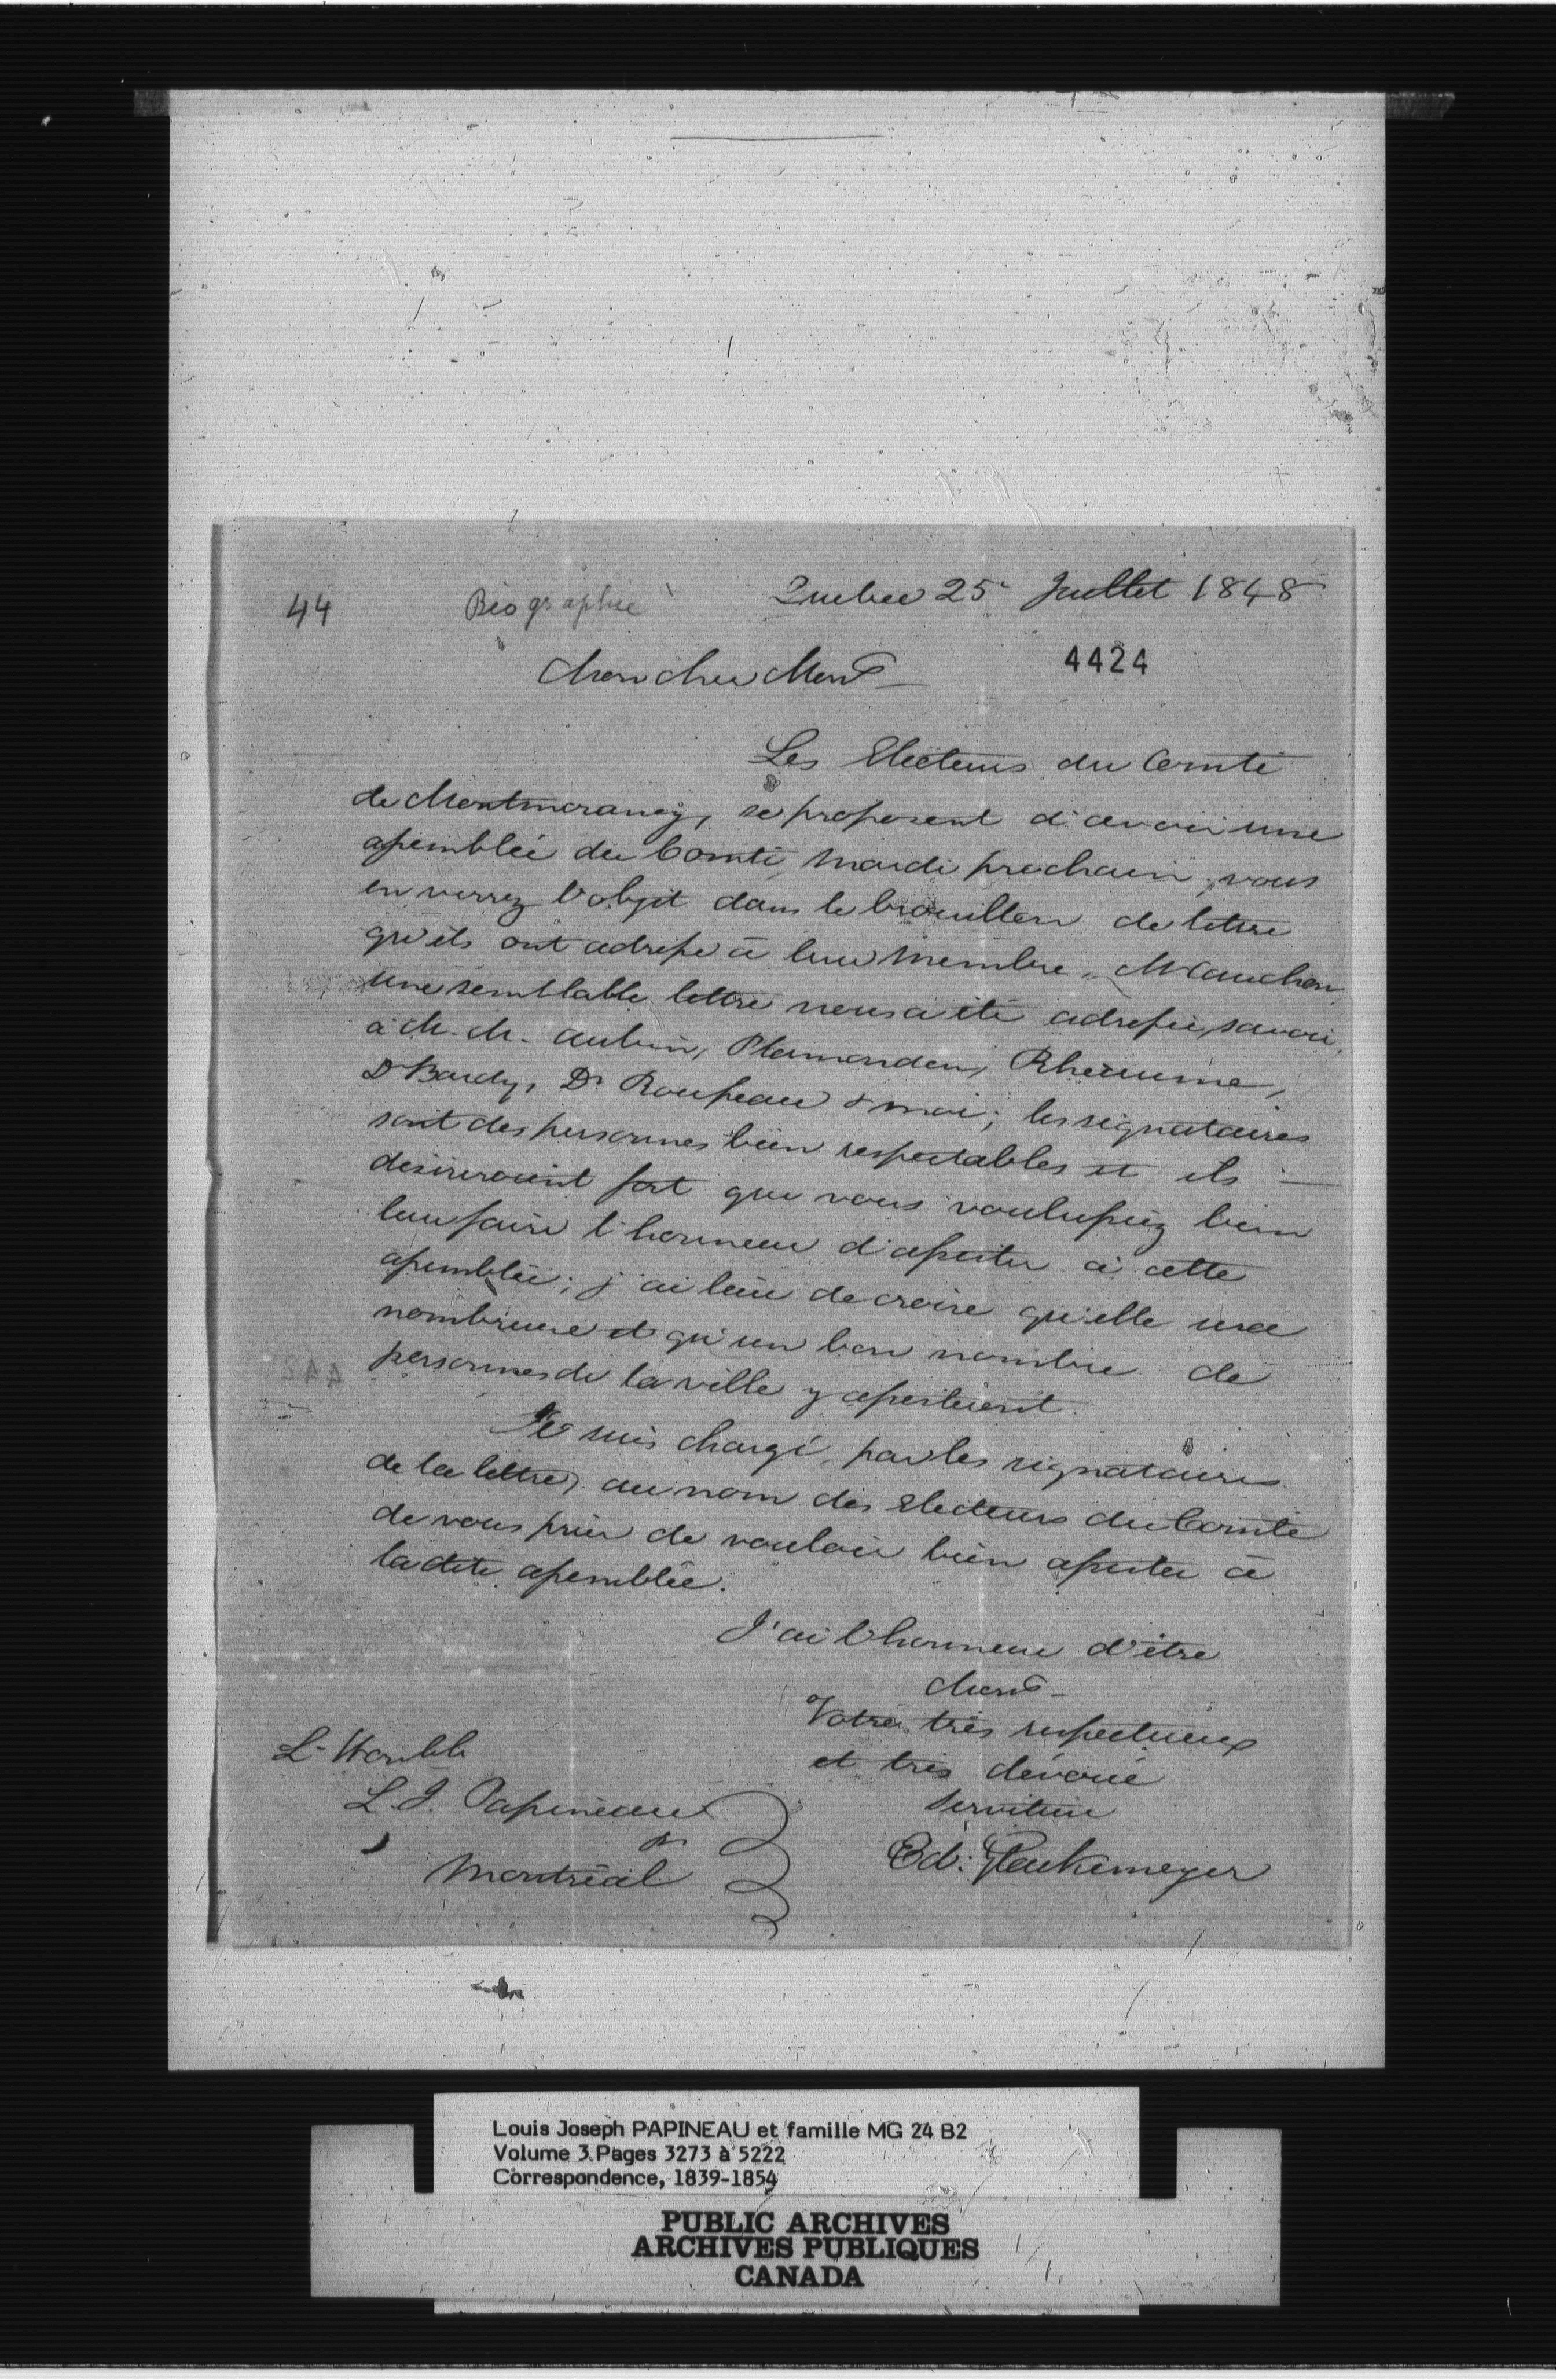 44 Biographie Quebec 25 Juillet 1848
4424
Mon cher Monsr
Les Electeurs du Comté
de Montmorency, se proposent d'avoir une
assemblée du Comté, Mardi prochain, vous
en verrez l'objet dans le brouillon de lettre
qu'ils ont adressé à leur Membre, Mr Cauchon.
Une semblable lettre nous a été adressée, savoir,
à M. M. Aubin, Plamondon, Rheaume,
Dr Bardy, Dr Rousseau & moi; les signataires
sont des personnes bien respectables et ils
désireraient fort que vous voulussiez bien
leur faire l'honneur d'assister à cette
assemblée; j'ai lieu de croire qu'elle sera
nombreuse et qu'un bon nombre de
personnes de la ville y assisteront.
Je suis chargé, par les signataires
de la lettre, au nom des Electeurs du Comté
de vous prier de vouloir bien assister à
la dite assemblée.
J'ai l'honneur d'être
Monsr
Votre très respectueux
et très dévoué
serviteur
Ed: Glackemeyer
L'Honble
L. J. Papineau
Montréal
Louis Joseph PAPINEAU et famille MG 24 B2
Volume 3 Pages 3273 à 5222
Correspondence, 1839-1854
PUBLIC ARCHIVES
ARCHIVES PUBLIQUES
CANADA